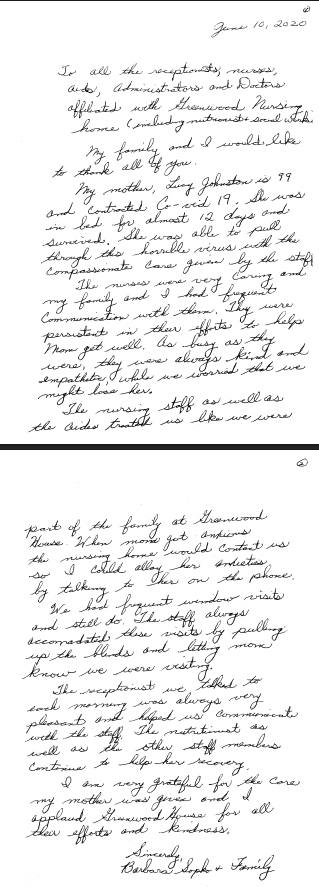 ①
June 10, 2020
To all the receptionists, nurses,
aids, administrators and Doctors
affiliated with Greenwood Nursing
home (including nutritionist & social worker
My family and I would like
to thank all of you.
My mother, Lucy Johnston is 99
and contracted Co-vid 19. She was
in bed for almost 12 days and
survived. She was able to pull
through this horrible virus with the
compassionate care given by the staff
The nurses were very caring and
my family and I had frequent
communication with them. They were
persistent in their efforts to help
Mom get well. As busy as they
were, they were always kind and
empathetic, while we worried that we
might lose her.
The nursing staff as well as
the aides treated us like we were
②
part of the family at Greenwood
House. When mom got anxious
the nursing home would contact us
so I could allay her anxieties
by talking to her on the phone.
We had frequent window visits
and still do. The staff always
accomodated these visits by pulling
up the blinds and letting mom
know we were visiting.
The receptionist we talked to
each morning was always very
pleasant and helped us communicate
with the staff. The nutritionist as
well as the other staff members
continue to help her recovery.
I am very grateful for the care
my mother was given and I
applaud Greenwood House for all
their efforts and kindness.
Sincerely,
Barbara & Family